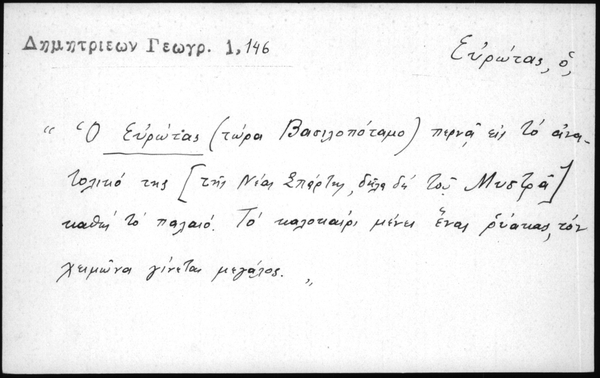 Δημητριεων Γεωγρ. 1, 146
Εὐρώτας, ὁ,
“ Ὁ Εὐρώτας (τώρα Βασιλοπόταμο) περνᾷ εἰς τὸ ἀνα-
τολικό της [τῆς Νέας Σπάρτης, δηλαδὴ τοῦ Μυστρᾶ]
καθὼς τὸ παλαιό. Τὸ καλοκαίρι μένει ἕνας ῥύακας, τὸν
χειμῶνα γίνεται μεγάλος. ”